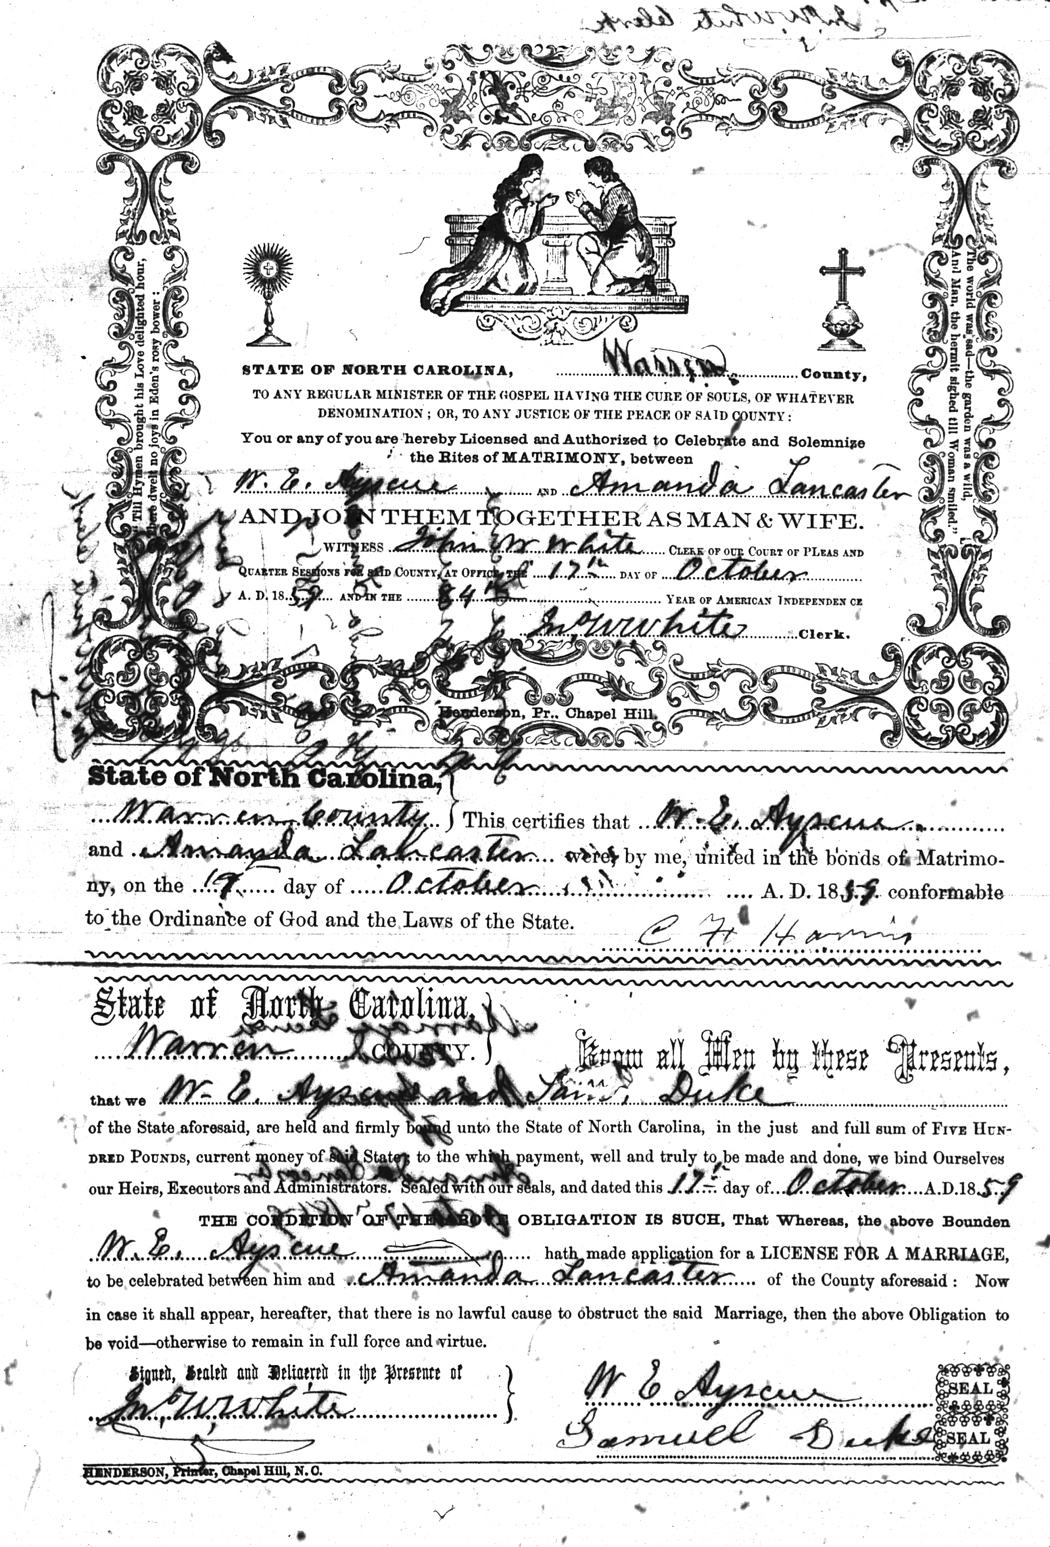 Jno W White Clerk
"Till Hymen brought his Love delighted hour,
There dwelt no joys in Eden's rosy bower:
The world was sad—the garden was a wild,
And Man, the hermit sighed till Woman smiled."
STATE OF NORTH CAROLINA, Warren County,
TO ANY REGULAR MINISTER OF THE GOSPEL HAVING THE CURE OF SOULS, OF WHATEVER
DENOMINATION; OR, TO ANY JUSTICE OF THE PEACE OF SAID COUNTY:
You or any of you are hereby Licensed and Authorized to Celebrate and Solemnize
the Rites of MATRIMONY, between
W. E. Ayscue AND Amanda Lancaster
AND JOIN THEM TOGETHER AS MAN & WIFE.
WITNESS John W White CLERK OF OUR COURT OF PLEAS AND
QUARTER SESSIONS FOR SAID COUNTY, AT OFFICE THE 17th DAY OF October
A. D. 1859 AND IN THE 84th YEAR OF AMERICAN INDEPENDENCE
Jno W White Clerk.
Henderson, Pr., Chapel Hill.
State of North Carolina,
Warren County } This certifies that W. E. Ayscue
and Amanda Lancaster were, by me, united in the bonds of Matrimo-
ny, on the 19 day of October A. D. 1859 conformable
to the Ordinance of God and the Laws of the State.
C H Harris
State of North Carolina,
Warren COUNTY. } Know all Men by these Presents,
that we W. E. Ayscue and Saml. Duke
of the State aforesaid, are held and firmly bound unto the State of North Carolina, in the just and full sum of FIVE HUN-
DRED POUNDS, current money of said State; to the which payment, well and truly to be made and done, we bind Ourselves
our Heirs, Executors and Administrators. Sealed with our seals, and dated this 17th day of October A.D. 1859
THE CONDITION OF THE ABOVE OBLIGATION IS SUCH, That Whereas, the above Bounden
W. E. Ayscue hath made application for a LICENSE FOR A MARRIAGE,
to be celebrated between him and Amanda Lancaster of the County aforesaid: Now
in case it shall appear, hereafter, that there is no lawful cause to obstruct the said Marriage, then the above Obligation to
be void—otherwise to remain in full force and virtue.
Signed, Sealed and Delivered in the Presence of
Jno W White
W E Ayscue SEAL
Samuel Duke SEAL
HENDERSON, Printer, Chapel Hill, N. C.